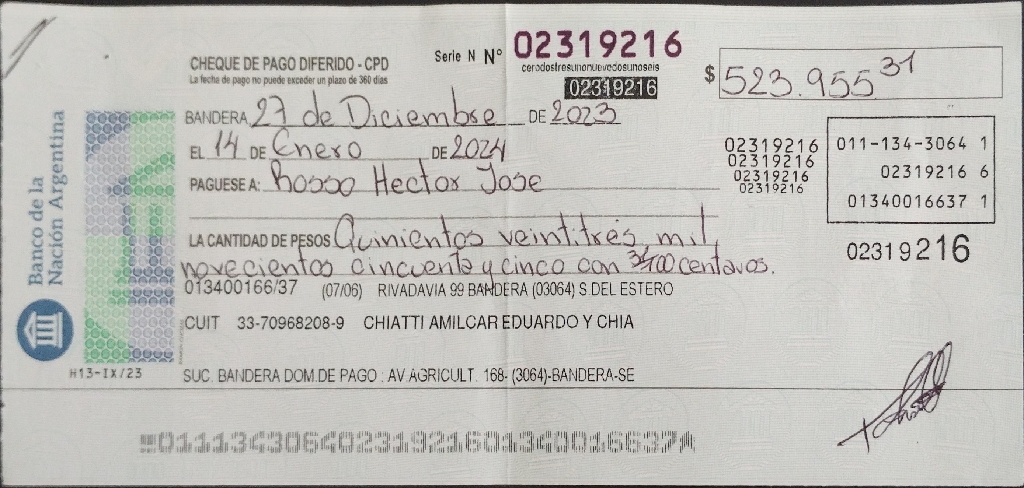 CHEQUE DE PAGO DIFERIDO - CPD
La fecha de pago no puede exceder un plazo de 360 días
Serie N Nº 02319216
cerodostresunonuevedosunoseis
02319216
$ 523.955 31
BANDERA, 27 de Diciembre DE 2023
EL 14 DE Enero DE 2024
PAGUESE A: Rosso Hector Jose
02319216
02319216
02319216
02319216
011-134-3064 1
02319216 6
01340016637 1
LA CANTIDAD DE PESOS Quinientos veintitrés mil,
novecientos cincuenta y cinco con 31/100 centavos.
02319216
013400166/37 (07/06) RIVADAVIA 99 BANDERA (03064) S.DEL ESTERO
CUIT 33-70968208-9 CHIATTI AMILCAR EDUARDO Y CHIA
SUC. BANDERA DOM.DE PAGO : AV.AGRICULT. 168- (3064)-BANDERA-SE
Banco de la
Nación Argentina
H13-IX/23
01113430640231921601340016637